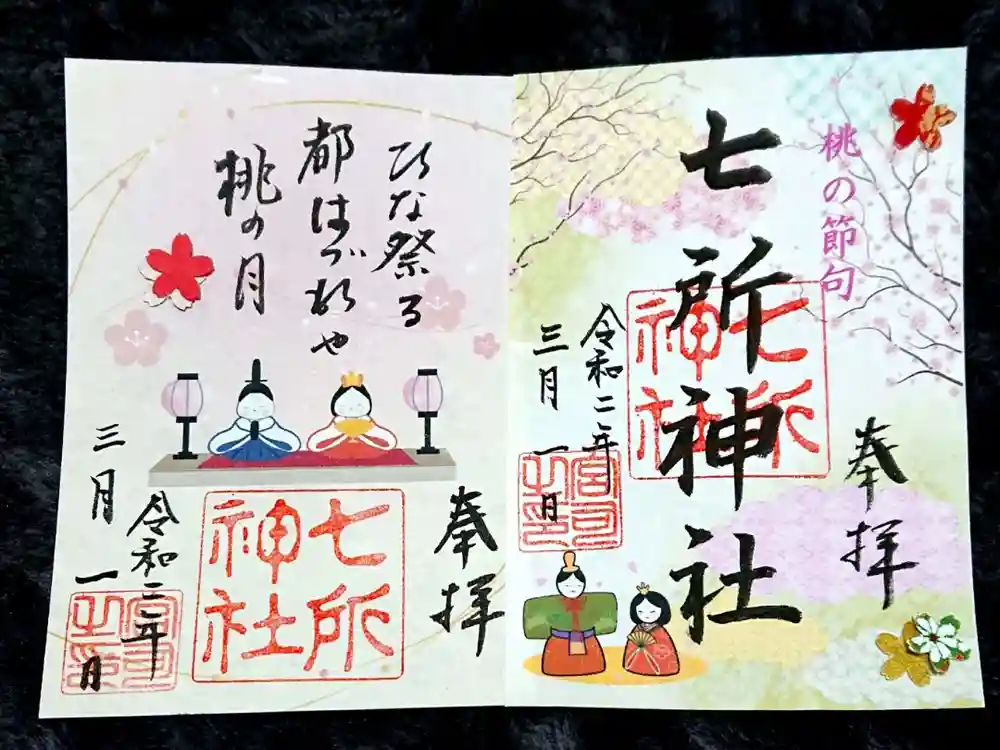 奉拝
桃の節句
七所神社
七所
神社
令和二年
三月一日
宮司
之印
奉拝
ひな祭る
都はづれや
桃の月
七所
神社
令和二年
三月一日
宮司
之印